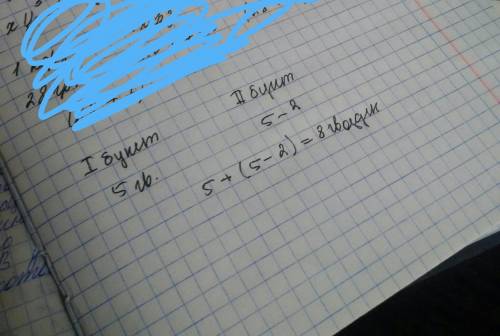 I букет II букет
5 гв. 5-2
5+(5-2)=8 гвоздик